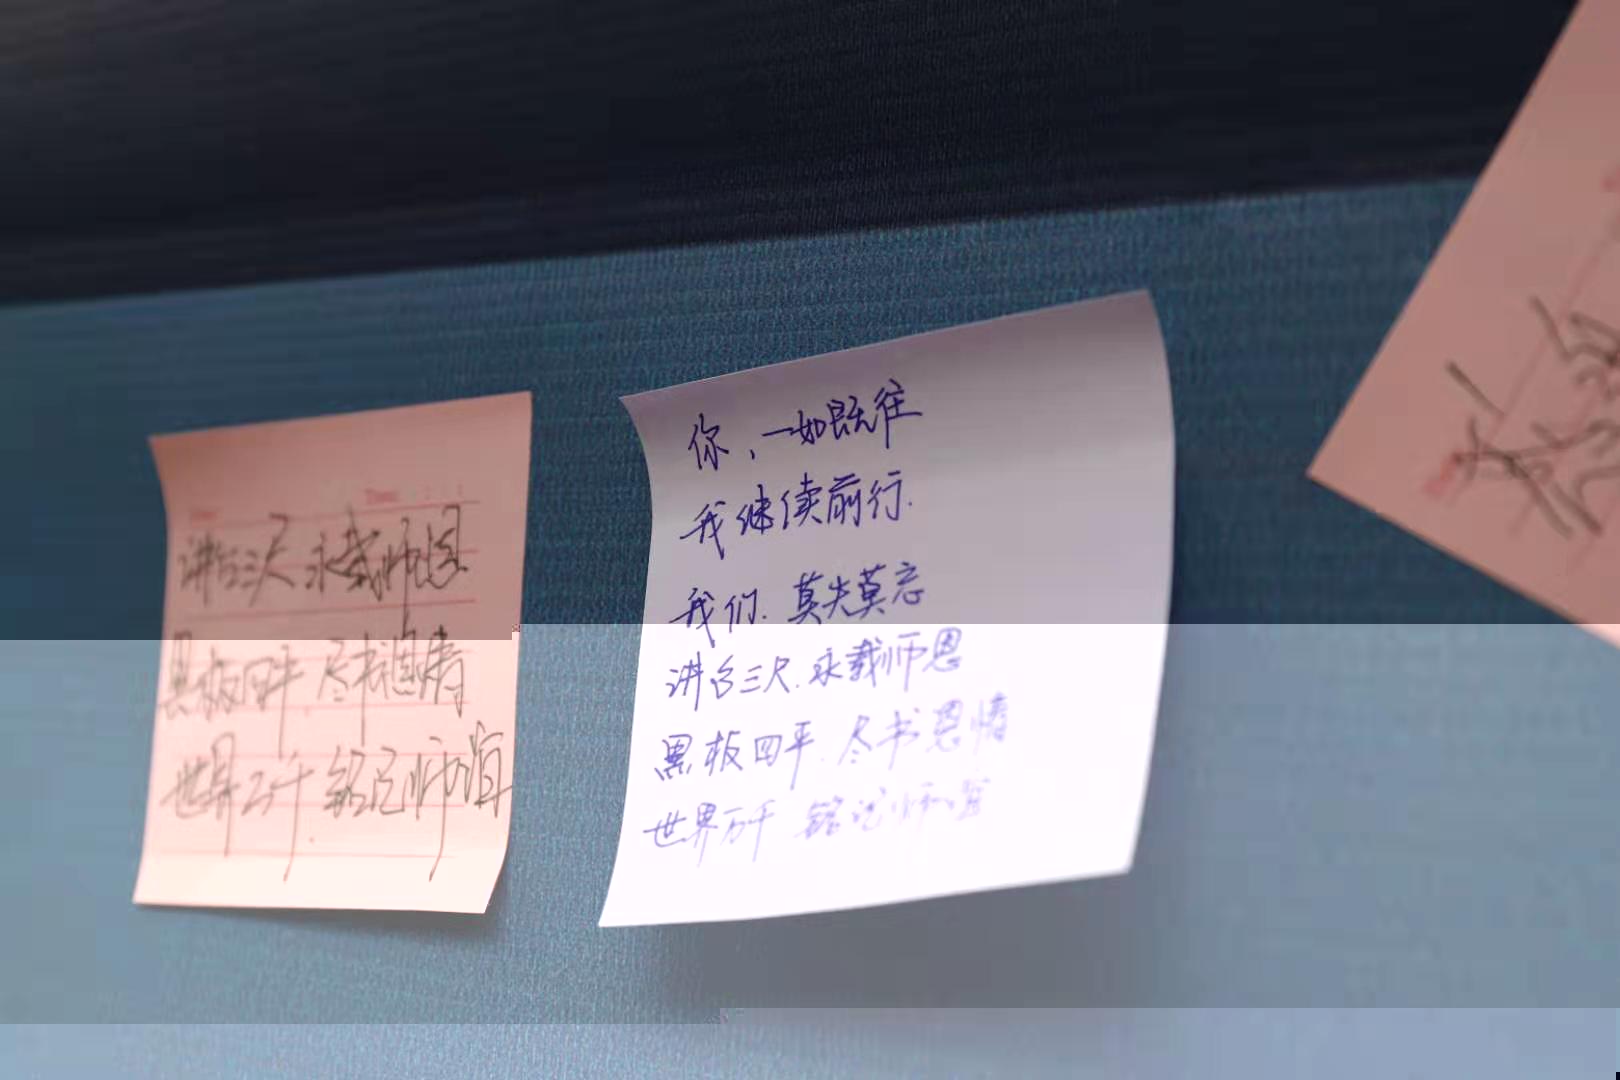 讲台三尺 永载师恩
黑板四平 尽书恩情
世界万千.铭记师谊
你,一如既往
我继续前行.
我们.莫失莫忘
讲台三尺.永载师恩
黑板四平.尽书恩情
世界万千 铭记师谊